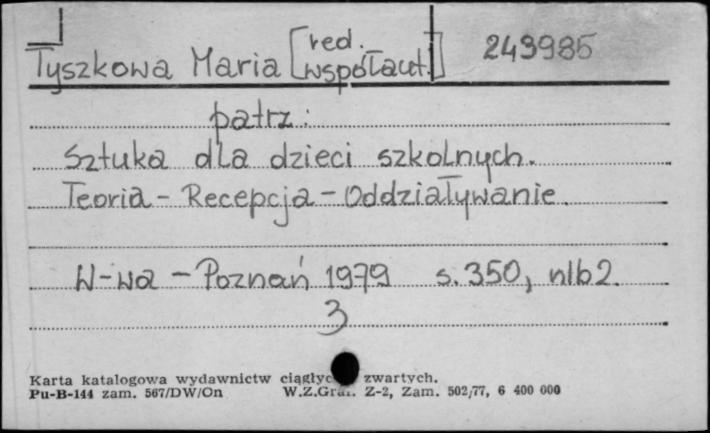 Tyszkowa Maria [red. współaut.] 249985
patrz:
Sztuka dla dzieci szkolnych.
Teoria - Recepcja - Oddziaływanie.
W-wa - Poznań 1979 s. 350, nlb 2.
3
Karta katalogowa wydawnictw zwartych.
Pu-B-144 zam. 567/DW/On W.Z.Graf. Z-2, Zam. 502/77, 6 400 000